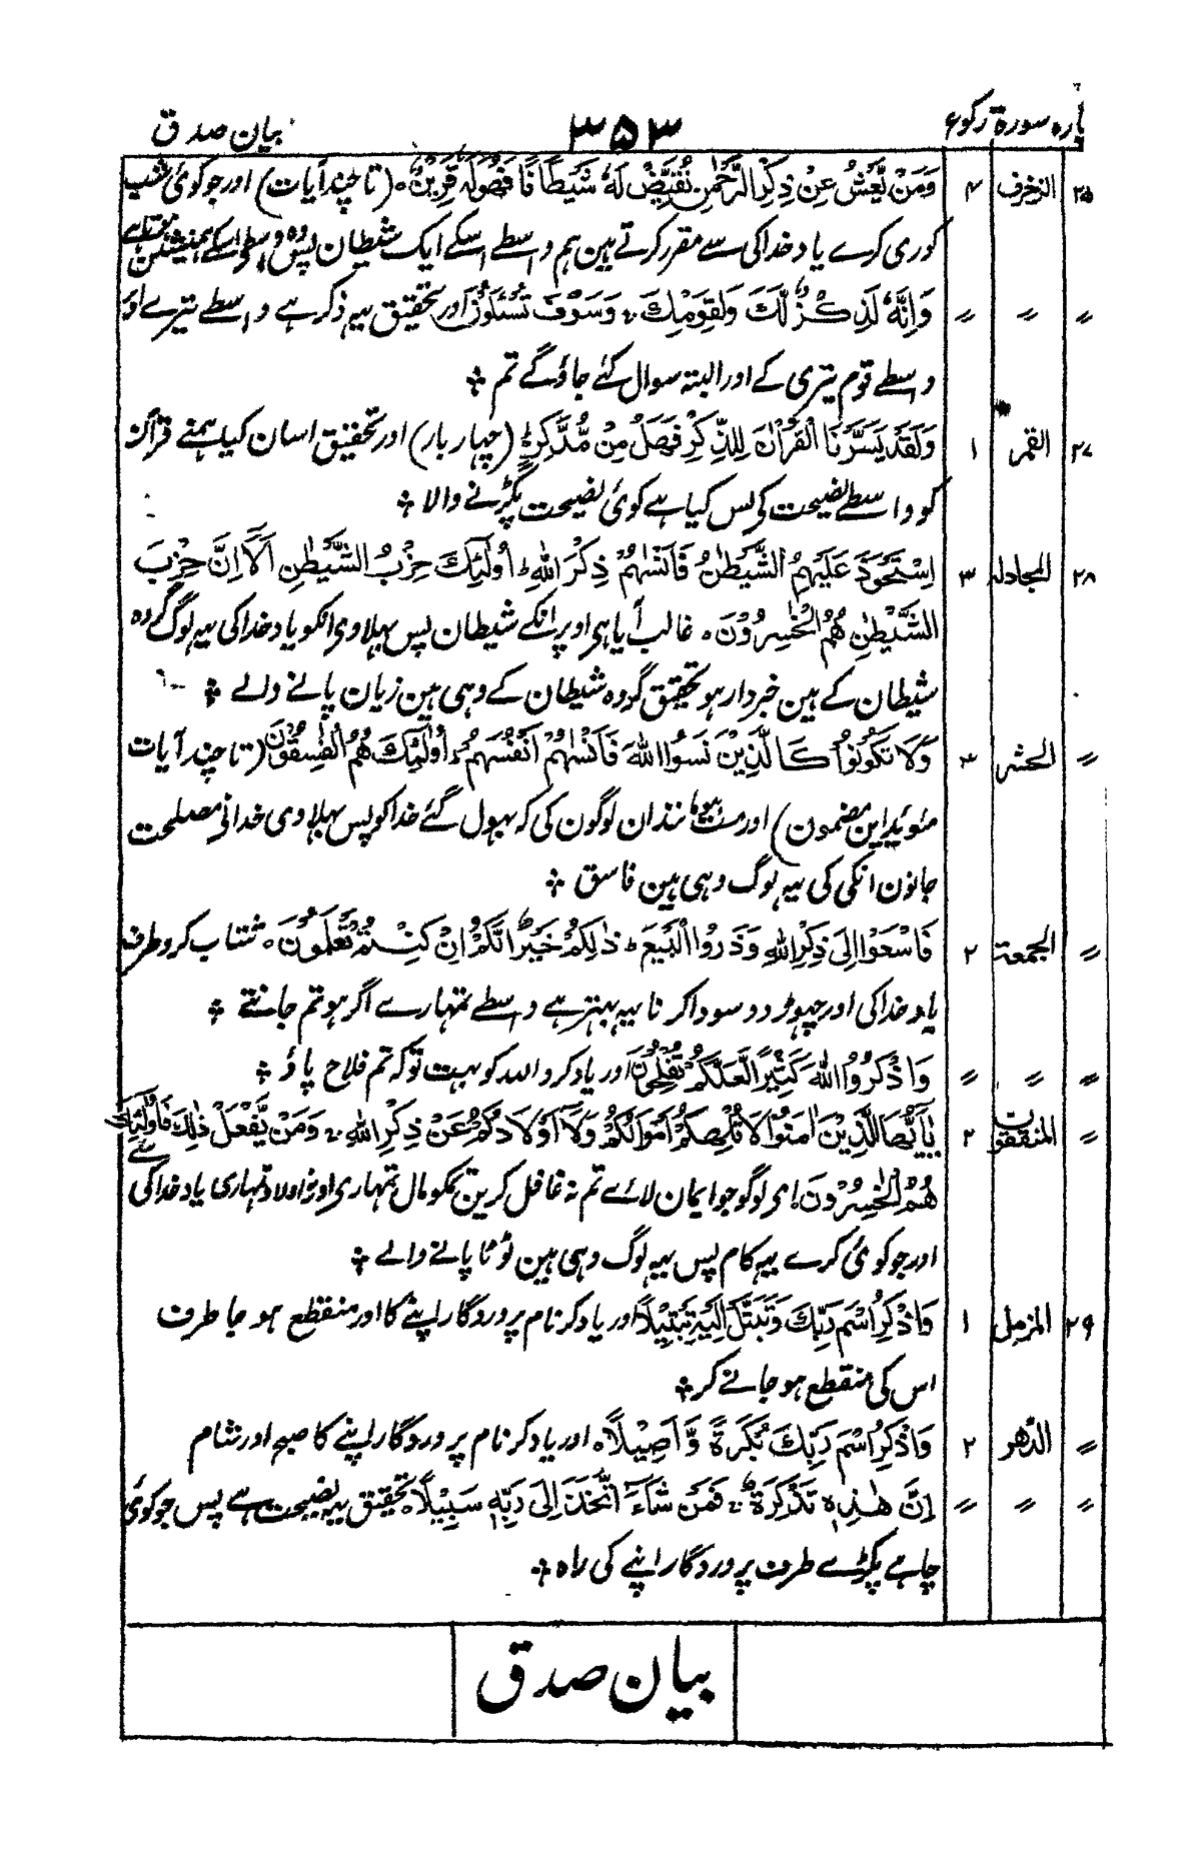 پارہ سورۃ رکوع ۳۵۳ بیان صدق
۲۵ الزخرف ۴ وَمَنْ يَّعْشُ عَنْ ذِكْرِ الرَّحْمٰنِ نُقَيِّضْ لَهٗ شَيْطٰنًا فَهُوَ لَهٗ قَرِيْنٌ۔ (تا چند آیات) اور جو کوئی شب
کوری کرے یاد خدا کی سے مقرر کرتے ہین ہم واسطے اسکے ایک شیطان پس وہ واسطے اسکے ہمنشین ہوتا ہے
〃 〃 〃 وَاِنَّهٗ لَذِكْرٌ لَّكَ وَلِقَوْمِكَ ۚ وَسَوْفَ تُسْئَلُوْنَ اور تحقیق یہہ ذکر ہے واسطے تیرے اور
واسطے قوم تیری کے اور البتہ سوال کئے جاؤگے تم ؞
۲۷ القمر ۱ وَلَقَدْ يَسَّرْنَا الْقُرْاٰنَ لِلذِّكْرِ فَهَلْ مِنْ مُّدَّكِرٍ (چہار بار) اور تحقیق اسان کیا ہمنے قرآن
کو واسطے نصیحت کی پس کیا ہے کوئی نصیحت پکڑنے والا ؞
۲۸ المجادلہ ۳ اِسْتَحْوَذَ عَلَيْهِمُ الشَّيْطٰنُ فَاَنْسٰهُمْ ذِكْرَ اللّٰهِ ؕ اُولٰٓئِكَ حِزْبُ الشَّيْطٰنِ اَلَآ اِنَّ حِزْبَ
الشَّيْطٰنِ هُمُ الْخٰسِرُوْنَ ۔ غالب آیا ہی اوپر انکے شیطان پس بہلا دی انکو یاد خدا کی یہہ لوگ گروہ
شیطان کے ہین خبردار ہو تحقیق گروہ شیطان کے وہی ہین زیان پانے والے ؞
〃 الحشر ۳ وَلَا تَكُوْنُوْا كَالَّذِيْنَ نَسُوا اللّٰهَ فَاَنْسٰهُمْ اَنْفُسَهُمْ ؕ اُولٰٓئِكَ هُمُ الْفٰسِقُوْنَ (تا چند آیات
مؤید این مضمون) اور مت ہو مانند ان لوگون کی کہ بہول گئے خدا کو پس بہلا دی خدا نی مصلحت
جانون انکی کی یہہ لوگ وہی ہین فاسق ؞
〃 الجمعۃ ۲ فَاسْعَوْا اِلٰى ذِكْرِ اللّٰهِ وَذَرُوا الْبَيْعَ ؕ ذٰلِكُمْ خَيْرٌ لَّكُمْ اِنْ كُنْتُمْ تَعْلَمُوْنَ ۔ شتاب کرو طرف
یاد خدا کی اور چہوڑ دو سودا کرنا یہہ بہتر ہے واسطے تمہارے اگر ہو تم جانتے ؞
〃 〃 〃 وَاذْكُرُوا اللّٰهَ كَثِيْرًا لَّعَلَّكُمْ تُفْلِحُوْنَ اور یاد کرو اللہ کو بہت تو کہ تم فلاح پاؤ ؞
〃 المنٰفقون ۲ يٰٓاَيُّهَا الَّذِيْنَ اٰمَنُوْا لَا تُلْهِكُمْ اَمْوَالُكُمْ وَلَآ اَوْلَادُكُمْ عَنْ ذِكْرِ اللّٰهِ ۚ وَمَنْ يَّفْعَلْ ذٰلِكَ فَاُولٰٓئِكَ
هُمُ الْخٰسِرُوْنَ۔ ای لوگو جو ایمان لائے تم نہ غافل کرین تمکو مال تمہاری اور نہ اولاد تمہاری یاد خدا کی سے
اور جو کوئی کرے یہہ کام پس یہہ لوگ وہی ہین ٹوٹا پانے والے ؞
۲۹ المزمل ۱ وَاذْكُرِ اسْمَ رَبِّكَ وَتَبَتَّلْ اِلَيْهِ تَبْتِيْلًا اور یاد کر نام پروردگار اپنے کا اور منقطع ہو جا طرف
اس کی منقطع ہو جانے کر ؞
〃 الدّھر ۲ وَاذْكُرِ اسْمَ رَبِّكَ بُكْرَةً وَّاَصِيْلًا۔ اور یاد کر نام پروردگار اپنے کا صبح اور شام
〃 〃 〃 اِنَّ هٰذِهٖ تَذْكِرَةٌ ۚ فَمَنْ شَآءَ اتَّخَذَ اِلٰى رَبِّهٖ سَبِيْلًا۔ تحقیق یہہ نصیحت ہے پس جو کوئی
چاہے پکڑے طرف پروردگار اپنے کی راہ ؞
بیان صدق